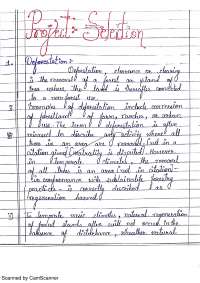 Project: Selection
1. Deforestation:-
Deforestation, clearance or clearing
is the removal of a forest or stand of
trees where the land is thereafter converted
to a non forest use.
Examples of deforestation include conversion
of forestland to farms, ranches, or urban
use. The term deforestation is often
misused to describe any activity where all
trees in an area are removed.
in temperate climates, the removal
of all trees in an area
in conformance with sustainable forestry
practices is correctly described as
regeneration harvest
In temperate climates, natural regeneration
of forest stands often will not occur in the
absence of disturbance, whether natural
Scanned by CamScanner